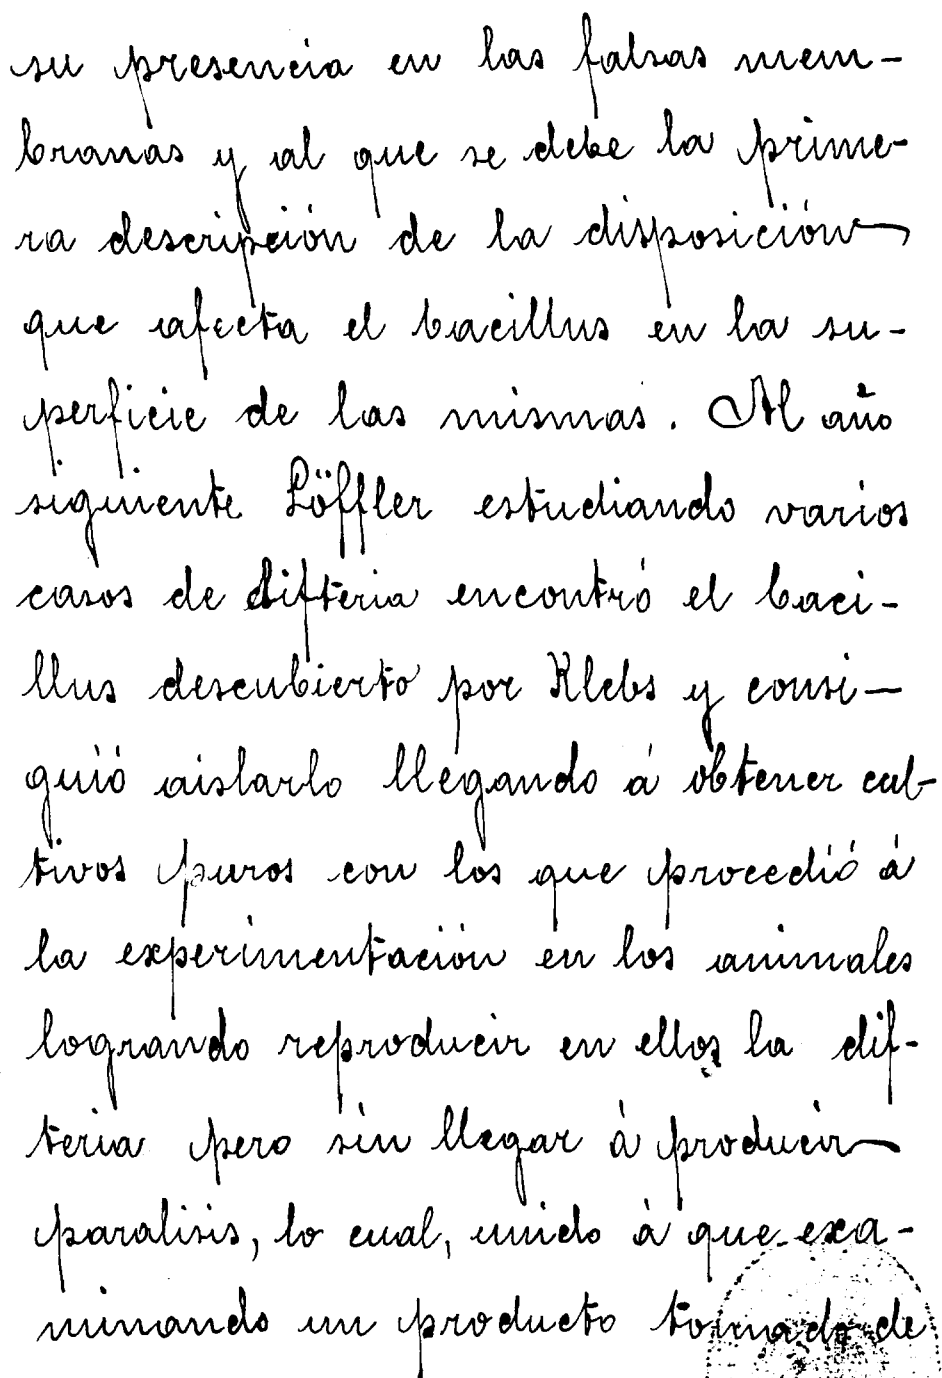 su presencia en las falsas mem-
branas y al que se debe la prime-
ra descripción de la disposición
que afecta el bacillus en la su-
perficie de las mismas. Al año
siguiente Löffler estudiando varios
casos de difteria encontró el baci-
llus descubierto por Klebs y consi-
guió aislarlo llegando á obtener cul-
tivos puros con los que procedió á
la experimentación en los animales
logrando reproducir en ellos la dif-
teria pero sin llegar á producir
paralisis, lo cual, unido á que exa-
minando un producto tomado de